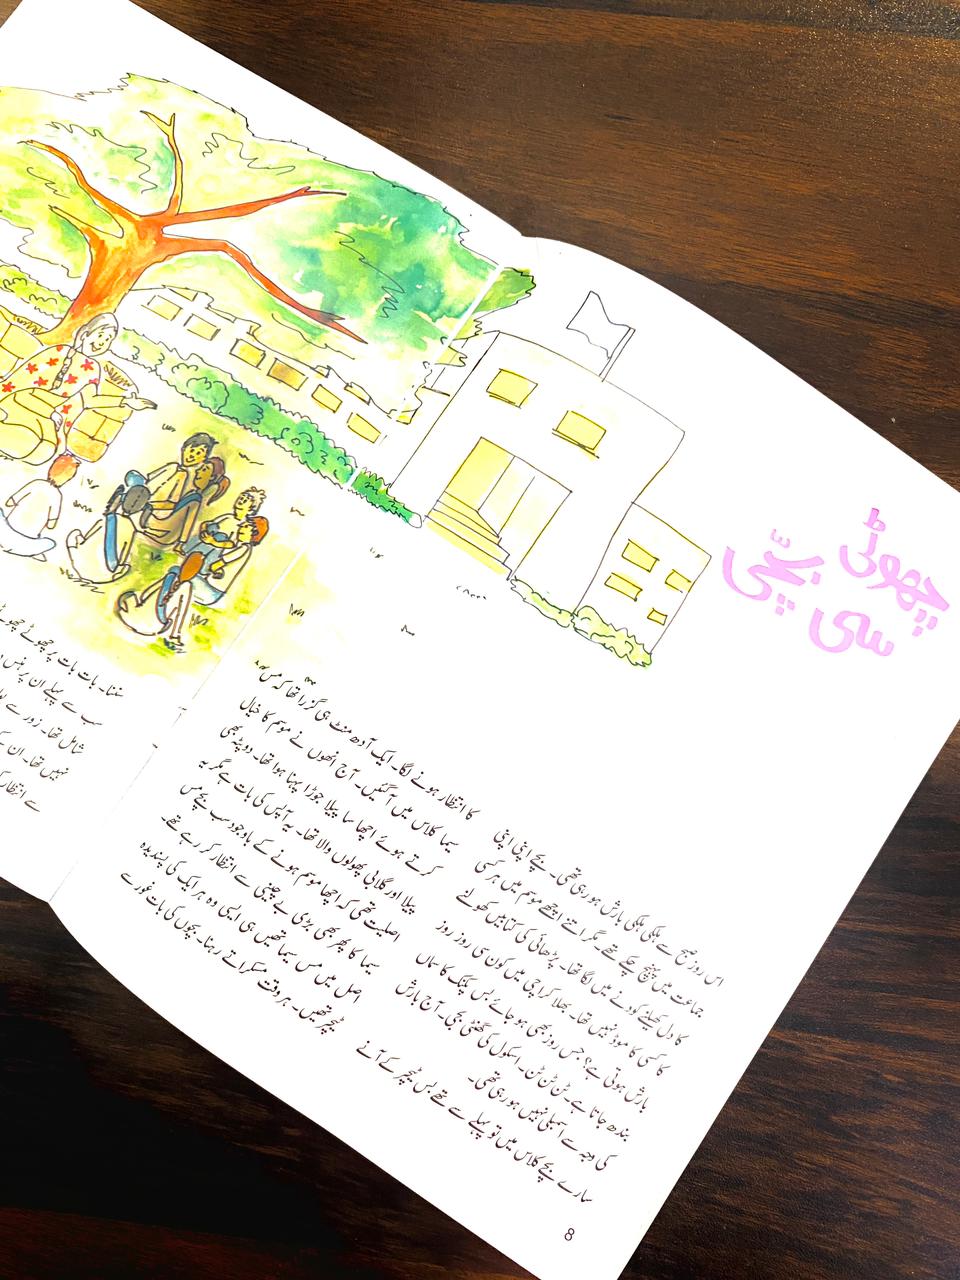 چھوٹی
سی بچّی
اس روز صبح سے ہلکی ہلکی بارش ہو رہی تھی۔ بچے اپنی اپنی
جماعت میں پہنچ چکے تھے۔ مگر اتنے اچھے موسم میں ہر کسی
کا دل کھیلنے کودنے میں لگا تھا۔ پڑھائی کی کتابیں کھولنے
کا کسی کا موڈ نہیں تھا۔ بھلا کراچی میں کون سی روز روز
بارش ہوتی ہے؟ جس روز بھی ہو جائے بس پکنک کا سماں
بندھ جاتا ہے۔ ٹن ٹن ٹن۔ اسکول کی گھنٹی بجی۔ آج بارش
کی وجہ سے اسمبلی نہیں ہو رہی تھی۔
سارے بچے کلاس میں تو پہلے سے تھے بس ٹیچر کے آنے
کا انتظار ہونے لگا۔ ایک آدھ منٹ ہی گزرا تھا کہ مس
سیما کلاس میں آ گئیں۔ آج انھوں نے موسم کا خیال
کرتے ہوئے اچھا سا پیلا جوڑا پہنا ہوا تھا۔ دوپٹہ بھی
پیلا اور گلابی پھولوں والا تھا۔ یہ آپس کی بات ہے مگر یہ
اصلیت تھی کہ اچھا موسم ہونے کے باوجود سب بچے مس
سیما کا پھر بھی بڑی بے چینی سے انتظار کر رہے تھے۔
اصل میں مس سیما تھیں ہی ایسی وہ ہر ایک کی پسندیدہ
ٹیچر تھیں۔ ہر وقت مسکراتے رہنا۔ بچوں کی بات غور سے
8
سننا۔ بات بات پر چھوٹے
سب سے پہلے ان پر ہنس
شامل تھا۔ زور سے
نہیں تھا۔ ان کے
سے انتظار